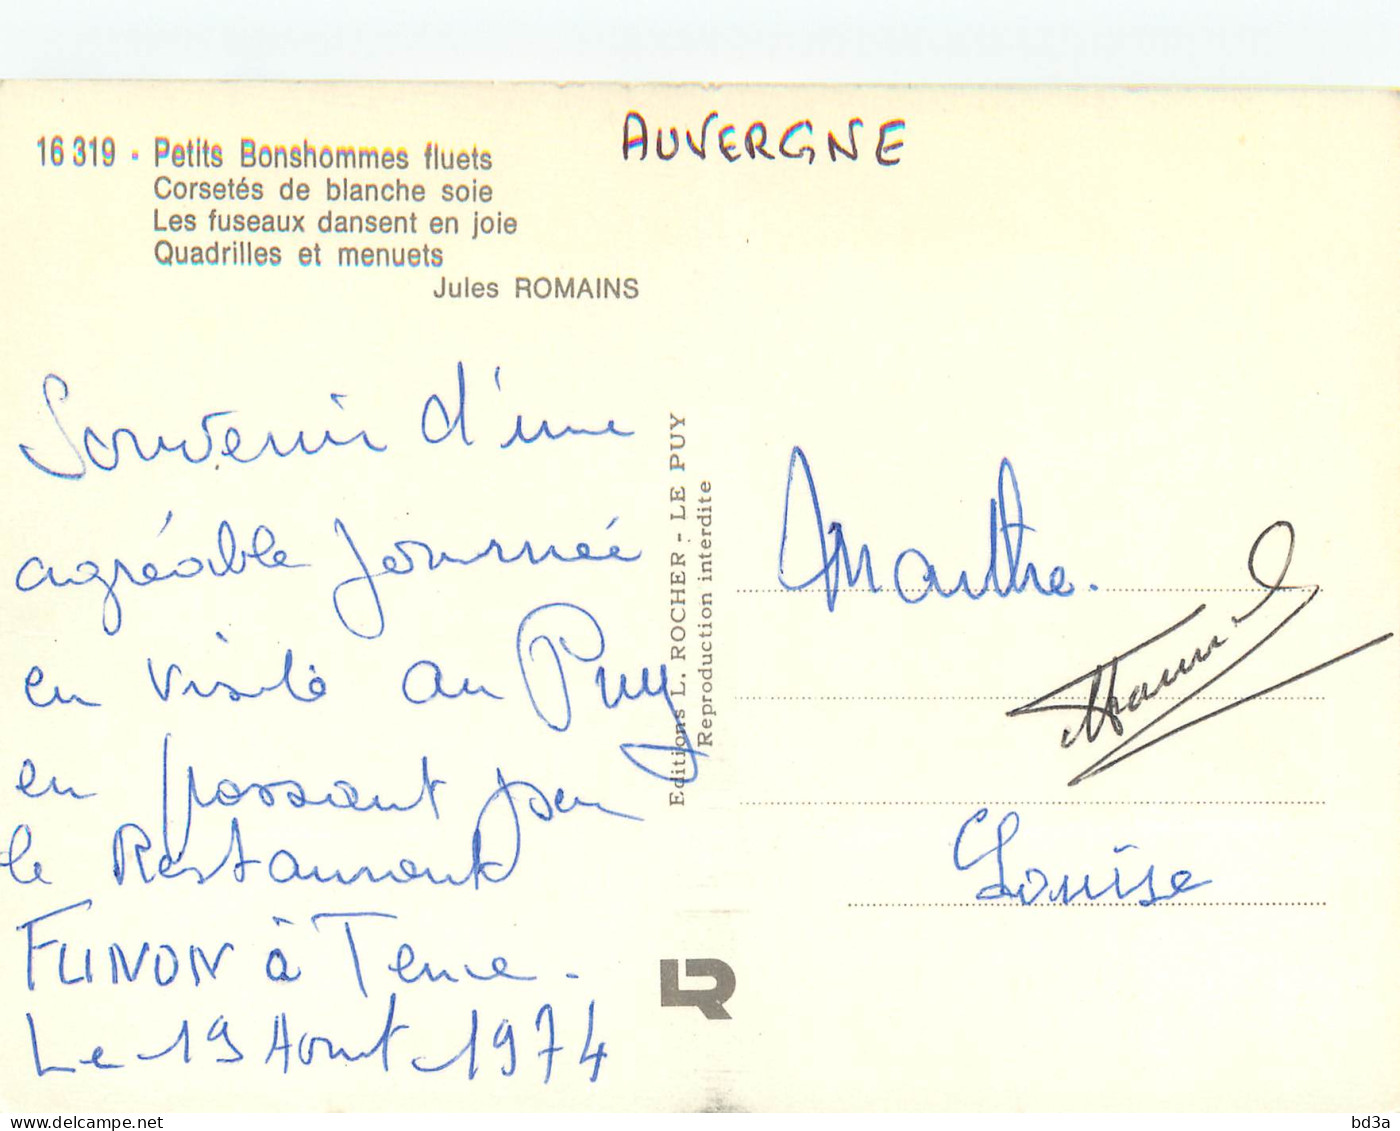 AUVERGNE
16 319 - Petits Bonshommes fluets
Corsetés de blanche soie
Les fuseaux dansent en joie
Quadrilles et menuets
Jules ROMAINS
Souvenir d'une
agréable journée
en visite au Puy
en passant par
le Restaurant
à Tence.
Le 19 Aout 1974
Editions L. ROCHER - LE PUY
Reproduction interdite
Marthe.
Louise
LR
bd3a